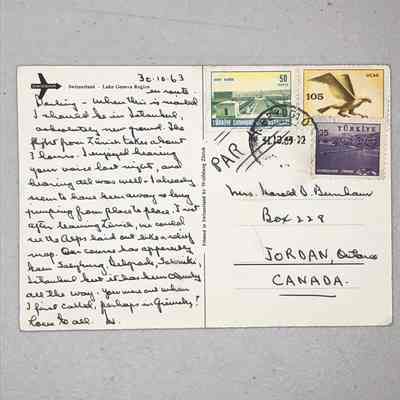 30.10.63
Switzerland - Lake Geneva Region
en route
Darling - When this is mailed
I should be in Istanbul,
absolutely new ground. The
flight from Zürich takes about
3 hours. I enjoyed hearing
your voice last night, and
hearing all was well - I already
seem to have been away a long
jumping from place to place. Just
after leaving Zürich, we could
see the Alps laid out like a relief
map. Our course has apparently
been Salzburg, Belgrade, Salonika,
Istanbul but it has been cloudy
all the way. You were out when
I first called, perhaps in Grimsby?
Love to all. H.
Printed in Switzerland by
Zürich
50
TÜRKİYE CUMHURİYETİ
105
UÇAK
35
TÜRKİYE
PAR
Mrs. Harold D. Burnham
Box 228
JORDAN, Ontario
CANADA.